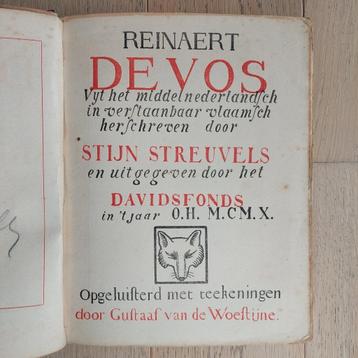 REINAERT
DE VOS
Vyt het middelnederlandsch
in verſtaanbaar vlaamſch
herſchreven door
STIJN STREUVELS
en uitgegeven door het
DAVIDSFONDS
in 't jaar O.H. M.CM.X.
Opgeluiſterd met teekeningen
door Guſtaaf van de Woeſtijne.